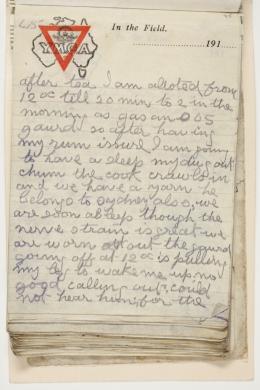 In the Field.
YMCA
191
after tea I am alloted from
12 oc till 20 min to 2 in the
morning as gas an SOS
gaurd so after having
my rum issue I am going
to have a sleep my dug out
chum the cook crawls in
and we have a yarn he
belongs to Sydney also, we
are soon asleep though the
nerve strain is great we
are worn about the gaurd
going off at 12 oc is pulling
my leg to wake me up no
good calling out could
not hear him, for the